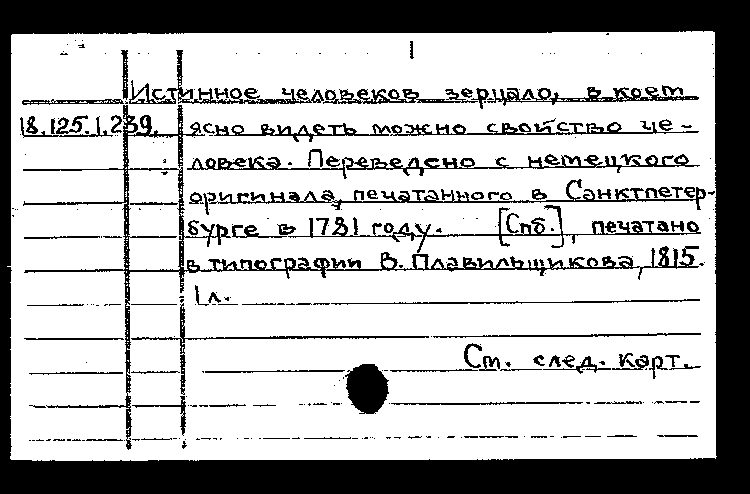 Истинное человеков зерцало, в коем
18.125.1.239. ясно видеть можно свойство че-
ловека. Переведено с немецкого
оригинала, печатанного в Санктпетер-
бурге в 1781 году. [Спб.], печатано
в типографии В. Плавильщикова, 1815.
1 л.
См. след. карт.